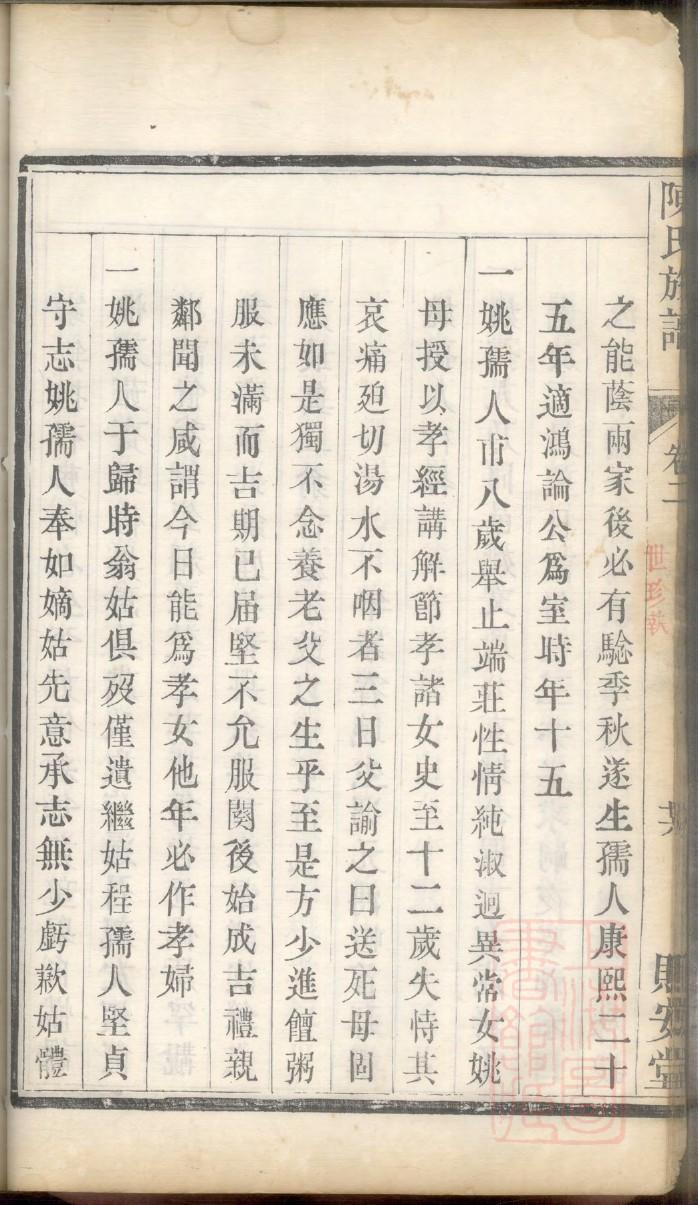 陳氏族譜
卷二
之能蔭兩家後必有驗季秋遂生孺人康熙二十
五年適鴻論公爲室時年十五
一姚孺人甫八歲舉止端莊性情純淑迥異常女姚
母授以孝經講解節孝諸女史至十二歲失恃其
哀痛廹切湯水不咽者三日父諭之曰送死母固
應如是獨不念養老父之生乎至是方少進饘粥
服未滿而吉期已届堅不允服闋後始成吉禮親
鄰聞之咸謂今日能爲孝女他年必作孝婦
一姚孺人于歸時翁姑俱歿僅遺繼姑程孺人堅貞
守志姚孺人奉如嫡姑先意承志無少虧歉姑體